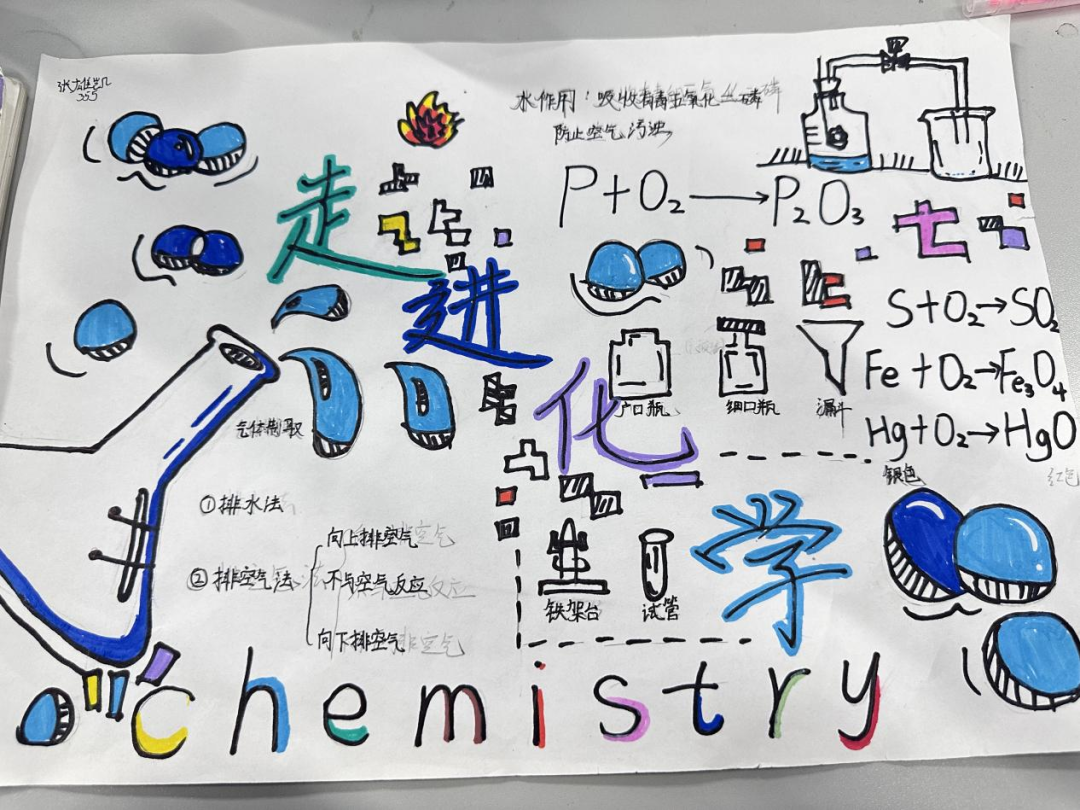 张雄凯
355
水作用：吸收有毒五氧化二磷
防止空气污浊
P+O₂→P₂O₃
走进化学
七
S+O₂→SO₂
Fe+O₂→Fe₃O₄
Hg+O₂→HgO
银色 红色
广口瓶 细口瓶 漏斗
气体制取
①排水法
向上排空气
②排空气法 不与空气反应
向下排空气
铁架台 试管
chemistry